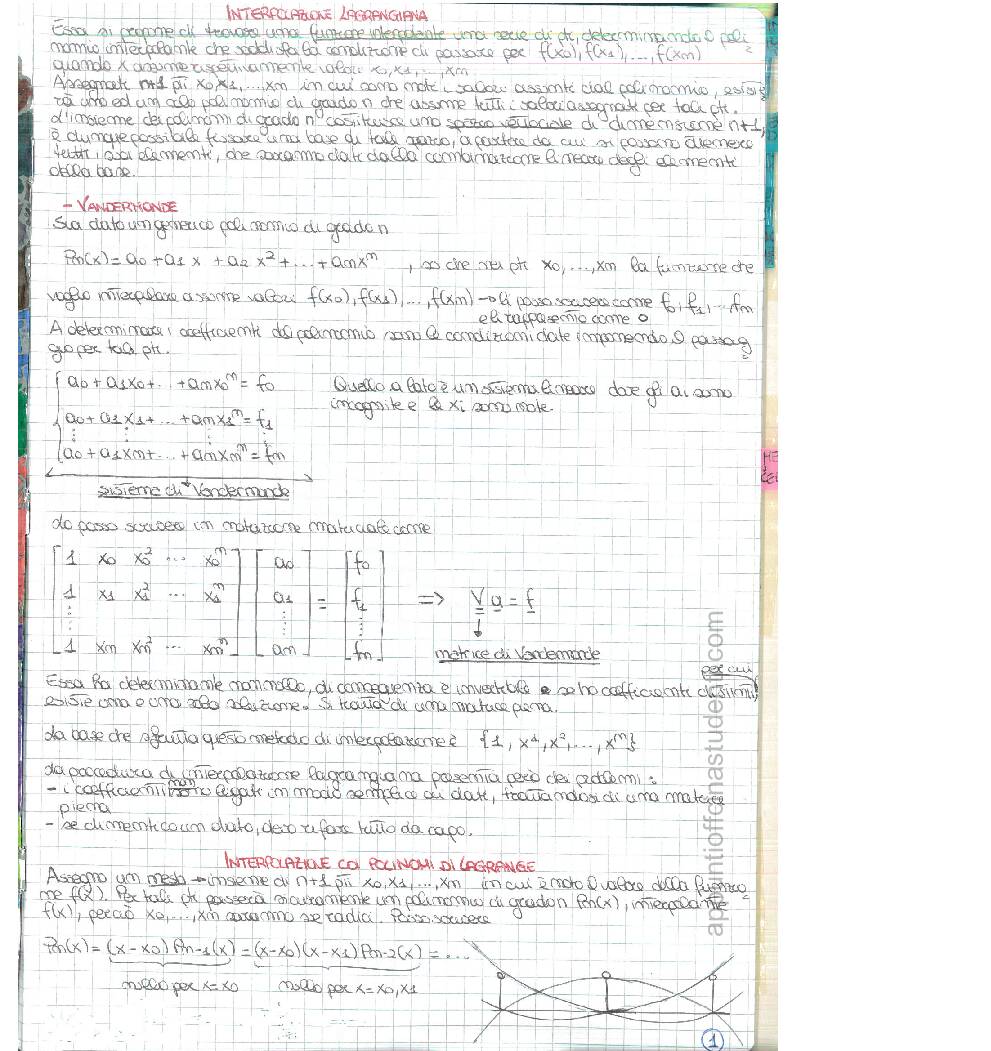 INTERPOLAZIONE LAGRANGIANA
Essa si propone di trovare una funzione interpolante una serie di pti, determinando il poli
nomio interpolante che soddisfa la condizione di passare per f(x0), f(x1), ..., f(xn)
quando x assume rispettivamente valori x0, x1, ..., xn.
Assegnati n+1 pti x0, x1, ..., xn in cui sono noti i valori assunti dal polinomio, esiste
rà uno ed un solo polinomio di grado n che assume tutti i valori assegnati per tali pti.
L'insieme dei polinomi di grado n costituisce uno spazio vettoriale di dimensione n+1,
è dunque possibile fissare una base di tale spazio, a partire da cui si possono ottenere
tutti i suoi elementi, che saranno dati dalla combinazione lineare degli elementi
della base.
- VANDERMONDE
Sia dato un generico polinomio di grado n
Pn(x) = a0 + a1 x + a2 x² + ... + an xⁿ , so che nei pti x0, ..., xn la funzione che
voglio interpolare assume valori f(x0), f(x1), ..., f(xn) → li posso scrivere come f0, f1, ... fn
e li rappresento come o
A determinare i coefficienti del polinomio sono le condizioni date imponendo il passag
gio per tali pti.
a0 + a1x0 + ... + anx0ⁿ = f0 Quello a lato è un sistema lineare dove gli ai sono
incognite e le xi sono note.
a0 + a1x1 + ... + anx1ⁿ = f1
⋮ ⋮ ⋮ ⋮
a0 + a1xn + ... + anxnⁿ = fn
sistema di Vandermonde
Lo posso scrivere in notazione matriciale come
1 x0 x0² ... x0ⁿ a0 f0
1 x1 x1² ... x1ⁿ a1 = f1 => V a = f
⋮ ⋮ ⋮
1 xn xn² ... xnⁿ an fn matrice di Vandermonde
per cui
Essa ha determinante non nullo, di conseguenza è invertibile e se ho coefficienti distinti,
esiste una e una sola soluzione. Si tratta di una matrice piena.
La base che sfrutta questo metodo di interpolazione è {1, x¹, x², ..., xⁿ}
La procedura di interpolazione lagrangiana presenta però dei problemi:
- i coefficienti non sono legati in modo semplice ai dati, trattandosi di una matrice
piena
- se dimentico un dato, devo rifare tutto da capo.
INTERPOLAZIONE COI POLINOMI DI LAGRANGE
Assegno un mesh → insieme di n+1 pti x0, x1, ..., xn in cui è noto il valore della funzio
ne f(x). Per tali pti passerà sicuramente un polinomio di grado n Pn(x), interpolante
f(x), perciò x0, ..., xn saranno sue radici. Posso scrivere
Pn(x) = (x-x0) Pn-1(x) = (x-x0)(x-x1) Pn-2(x) = ...
nullo per x=x0 nullo per x=x0, x1
1
appuntioffcinastudenti.com